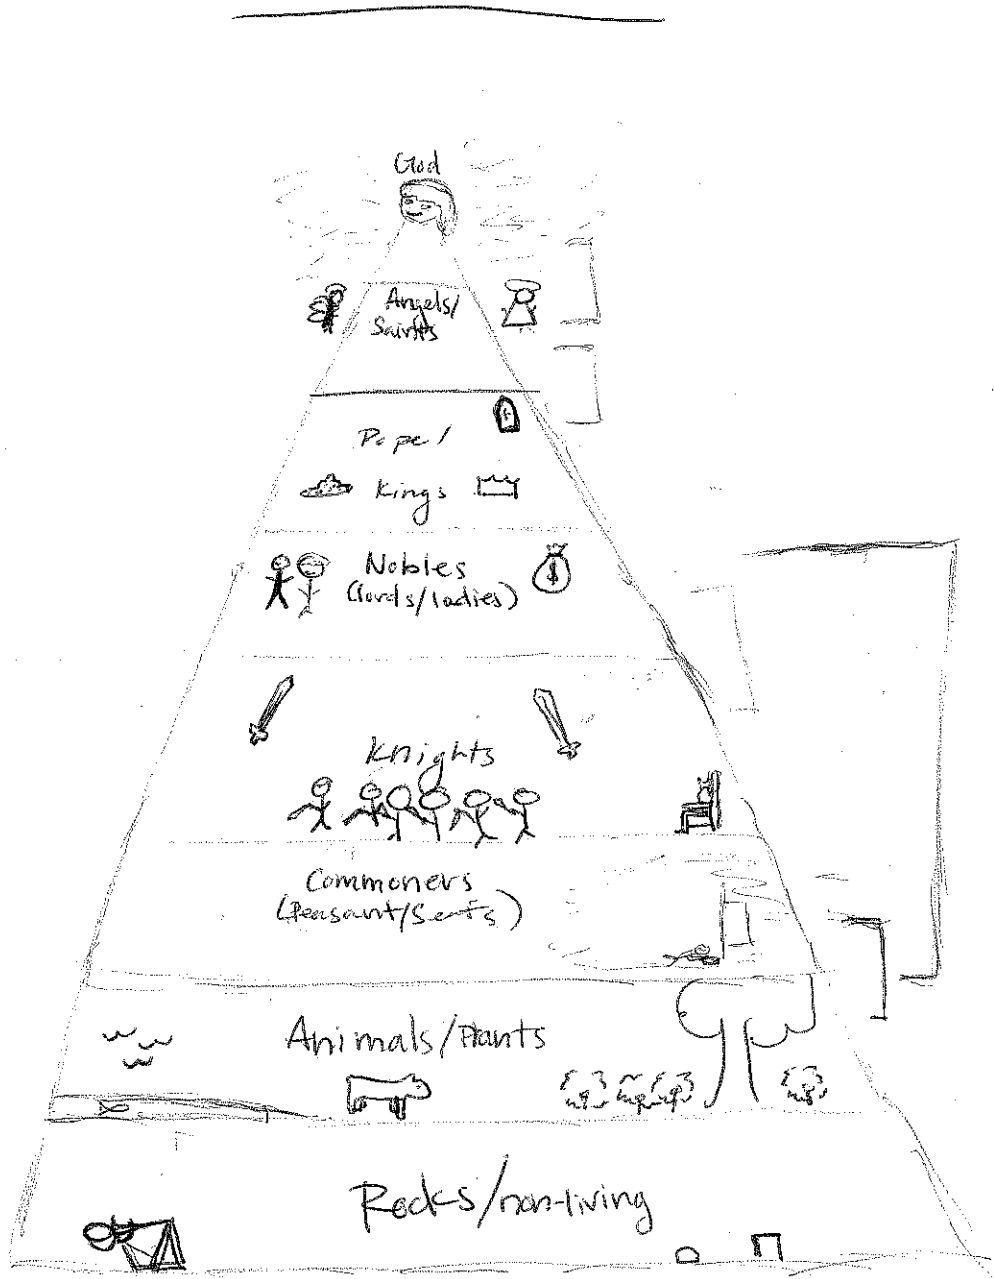 God
Angels/
Saints
Pope/
Kings
Nobles
(lords/ladies)
$
Knights
Commoners
(Peasant/Serfs)
Animals/Plants
Rocks/non-living